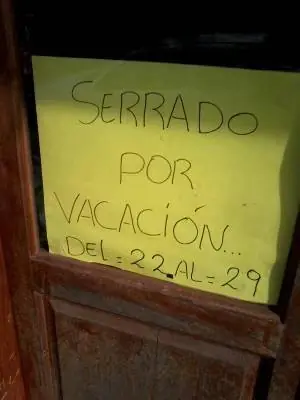 SERRADO
POR
VACACIÓN...
DEL=22 AL=29